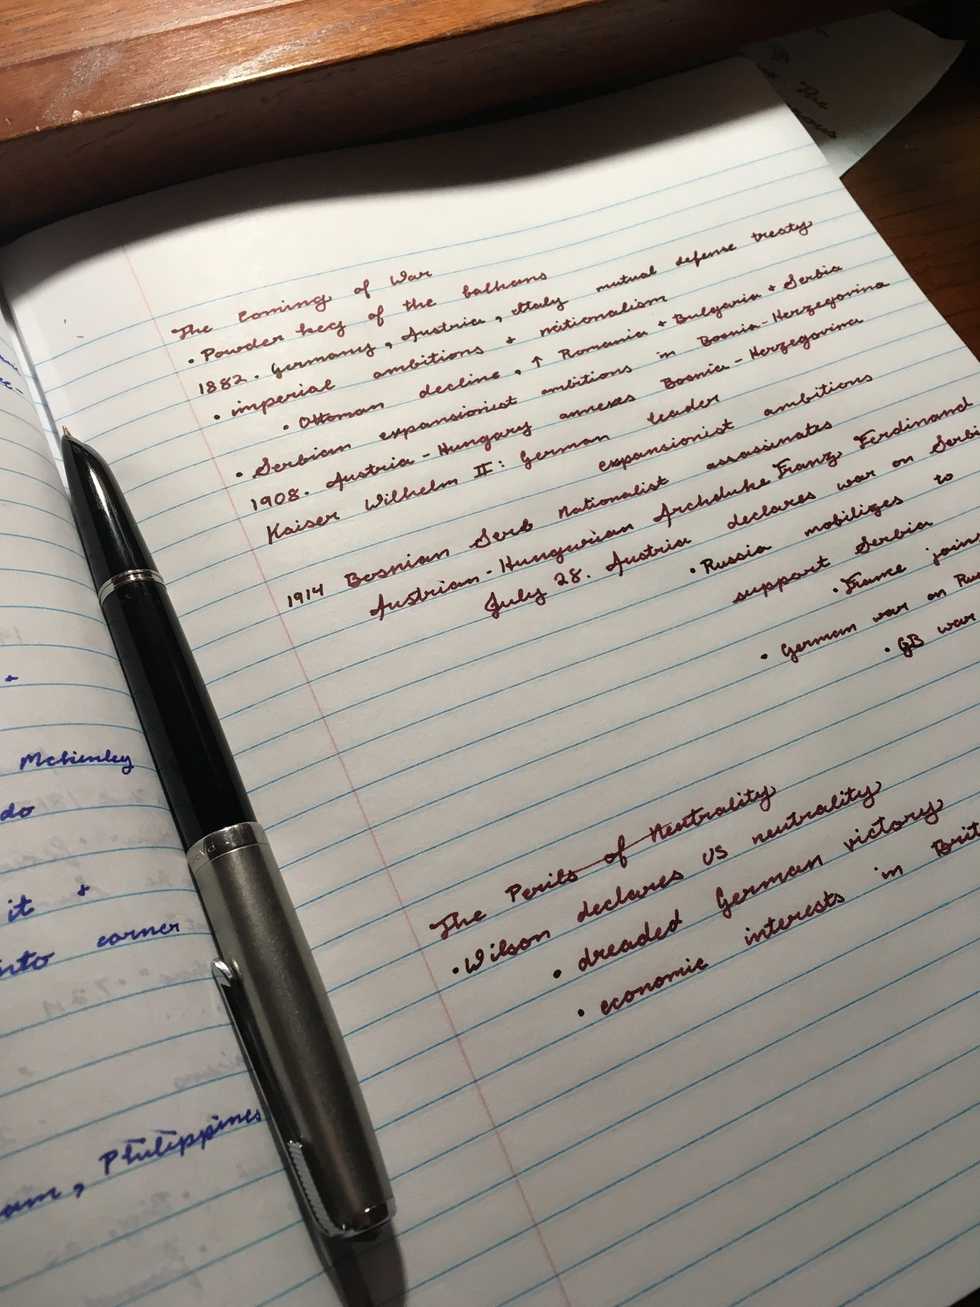 The Coming of War
• Powder keg of the balkans
1882. Germany, Austria, Italy mutual defense treaty
• imperial ambitions + nationalism
• Ottoman decline, ↑ Romania + Bulgaria + Serbia
• Serbian expansionist ambitions in Bosnia-Herzegovina
1908. Austria-Hungary annexes Bosnia-Herzegovina
Kaiser Wilhelm II: German leader
expansionist ambitions
1914 Bosnian Serb nationalist assassinates
Austrian-Hungarian Archduke Franz Ferdinand
July 28. Austria declares war on Serbi
• Russia mobilizes to
support Serbia
• France joins
• German war on Rus
• GB war
The Perils of Neutrality
• Wilson declares US neutrality
• dreaded German victory
• economic interests in Brit
+
Mckinley
do
it +
into corner
Philippines